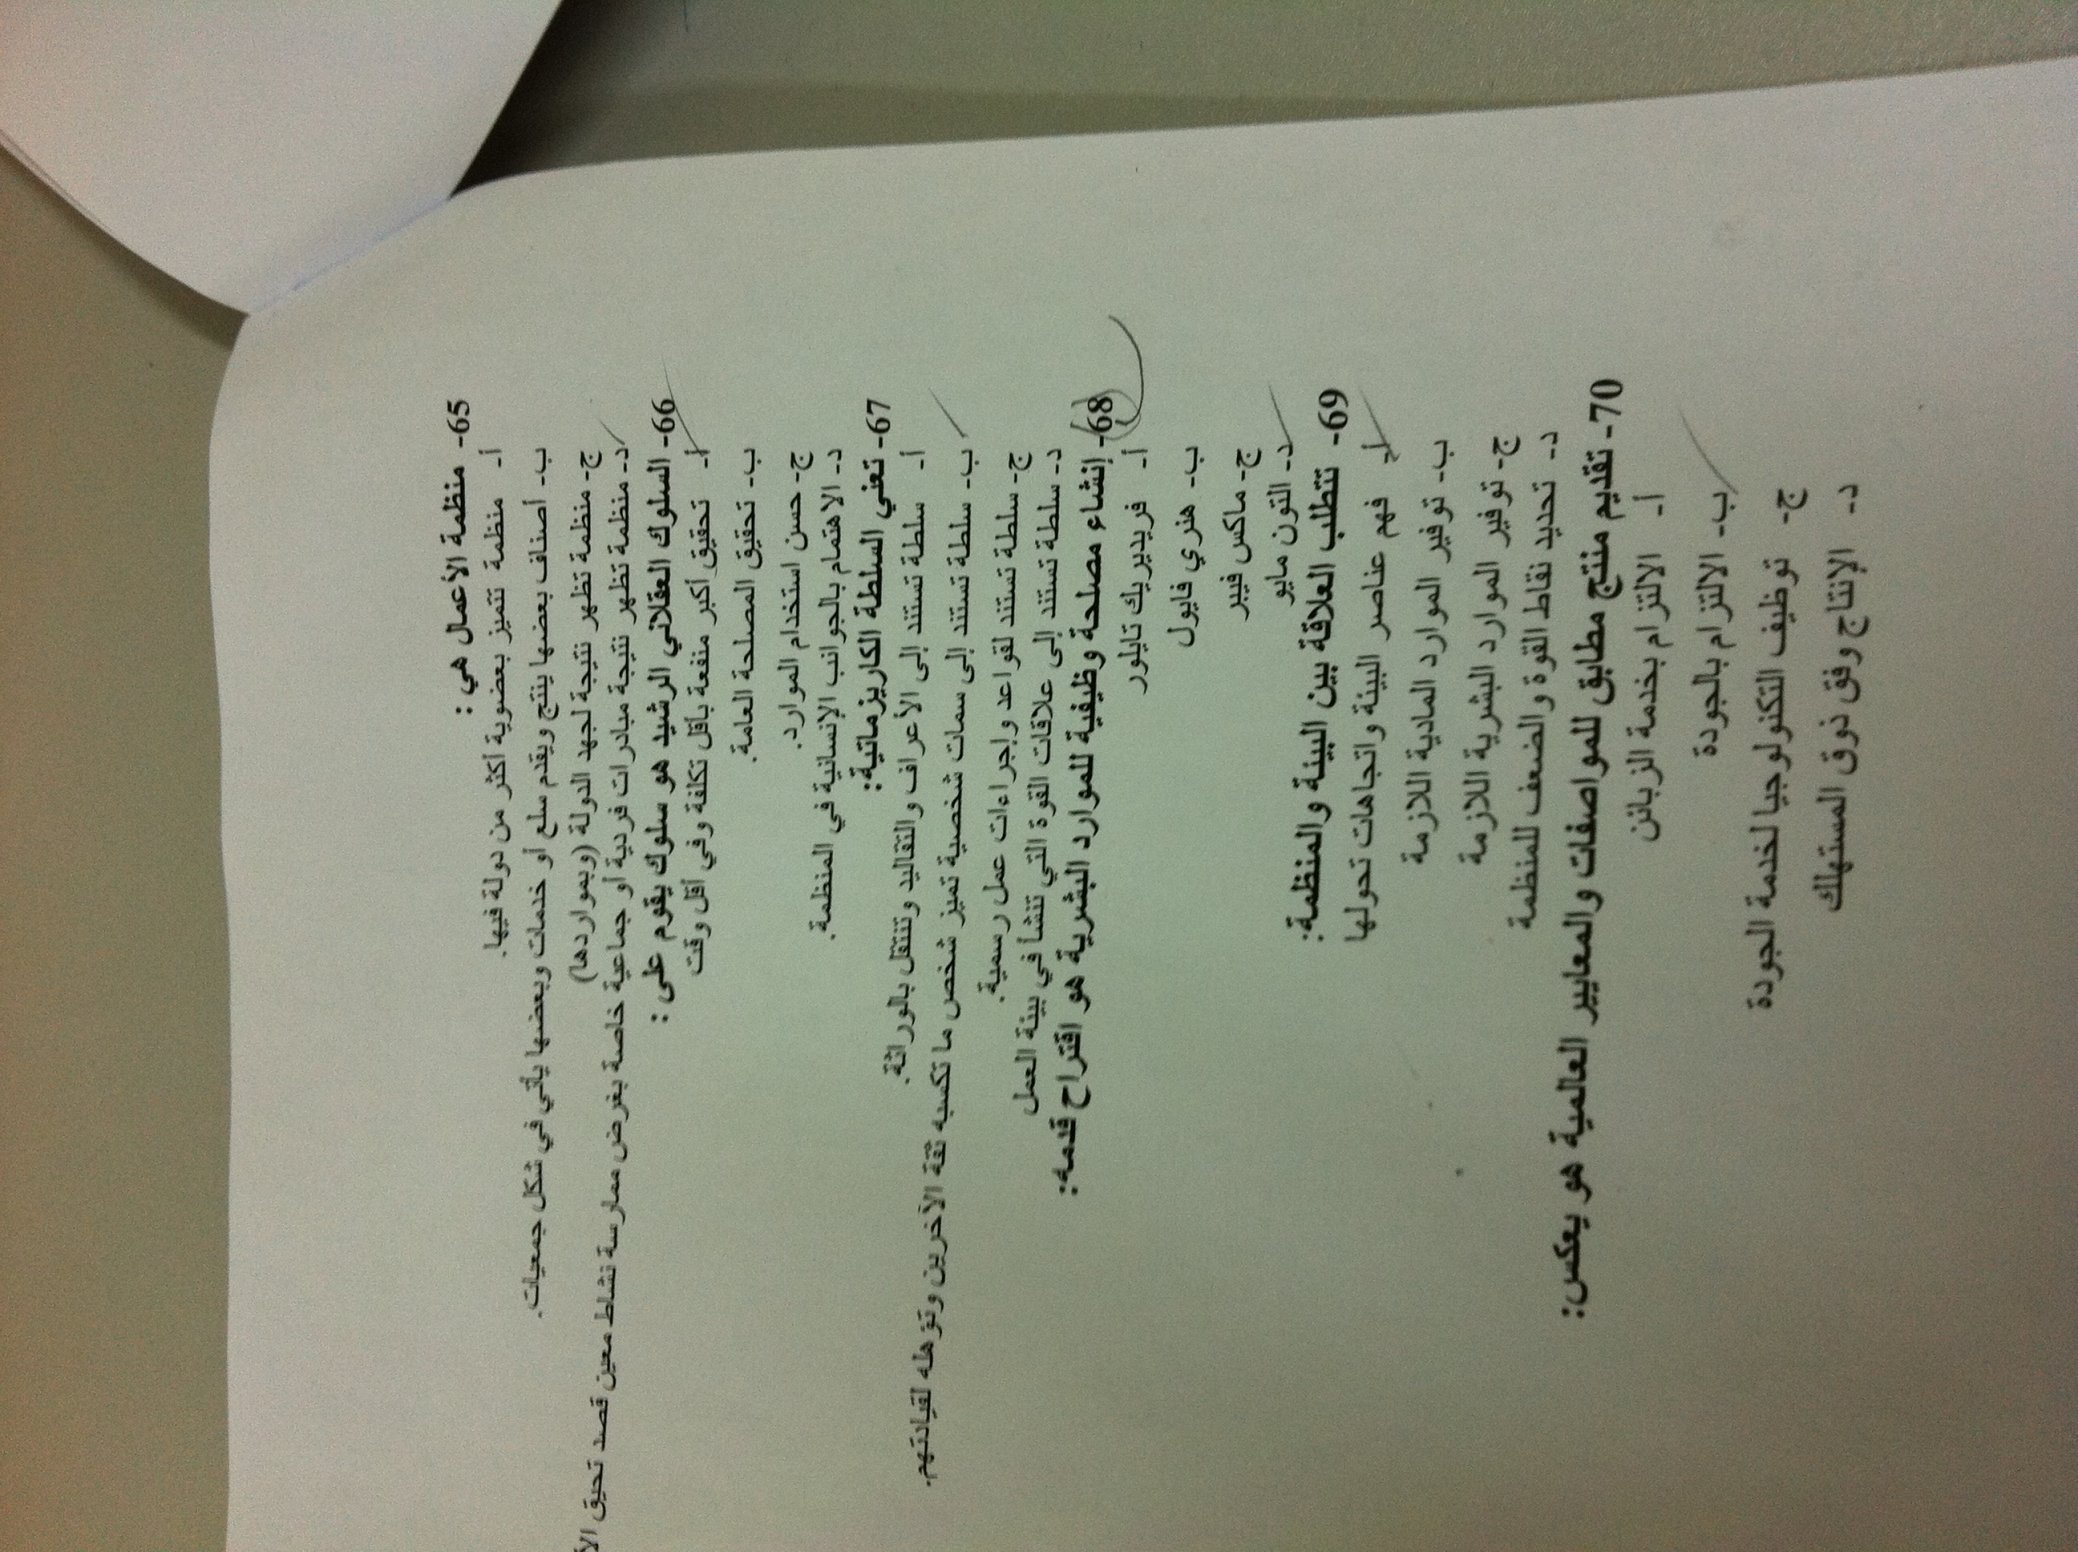 65- منظمة الأعمال هي :
أ- منظمة تتميز بعضوية أكثر من دولة فيها.
ب- أصناف بعضها ينتج ويقدم سلع أو خدمات وبعضها يأتي في شكل جمعيات.
ج- منظمة تظهر نتيجة لجهد الدولة (وبمواردها)
د- منظمة تظهر نتيجة مبادرات فردية أو جماعية خاصة بغرض ممارسة نشاط معين قصد تحيق
66- السلوك العقلاني الرشيد هو سلوك يقوم على :
أ- تحقيق أكبر منفعة بأقل تكلفة وفي أقل وقت
ب- تحقيق المصلحة العامة.
ج- حسن استخدام الموارد.
د- الاهتمام بالجوانب الإنسانية في المنظمة.
67- تعني السلطة الكاريزماتية:
أ- سلطة تستند إلى الأعراف والتقاليد وتنتقل بالوراثة.
ب- سلطة تستند إلى سمات شخصية تميز شخص ما تكسبه ثقة الآخرين وتؤهله لقيادتهم.
ج- سلطة تستند لقواعد وإجراءات عمل رسمية.
د- سلطة تستند إلى علاقات القوة التي تنشأ في بيئة العمل
68- إنشاء مصلحة وظيفية للموارد البشرية هو اقتراح قدمه:
أ- فريديريك تايلور
ب- هنري فايول
ج- ماكس فيبر
د- التون مايو
69- تتطلب العلاقة بين البيئة والمنظمة:
أ- فهم عناصر البيئة واتجاهات تحولها
ب- توفير الموارد المادية اللازمة
ج- توفير الموارد البشرية اللازمة
د- تحديد نقاط القوة والضعف للمنظمة
70- تقديم منتج مطابق للمواصفات والمعايير العالمية هو يعكس:
أ- الالتزام بخدمة الزبائن
ب- الالتزام بالجودة
ج- توظيف التكنولوجيا لخدمة الجودة
د- الإنتاج وفق ذوق المستهلك